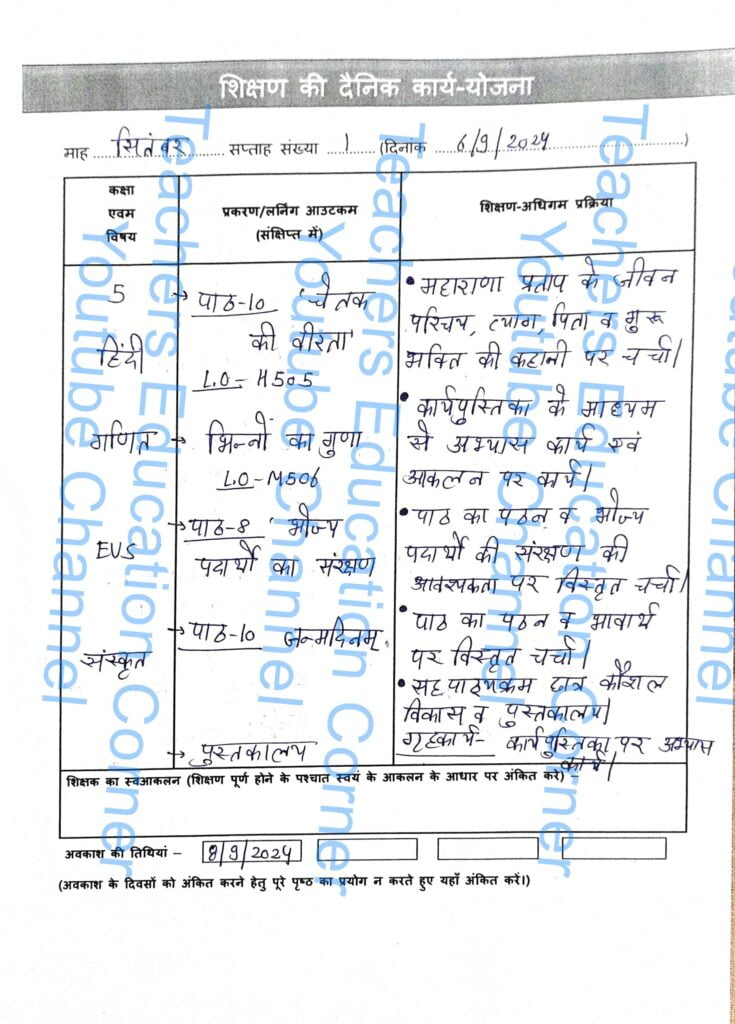 शिक्षण की दैनिक कार्य-योजना
माह सितंबर सप्ताह संख्या 1 (दिनाक 6/9/2024)
कक्षा
एवम
विषय
प्रकरण/लर्निंग आउटकम
(संक्षिप्त में)
शिक्षण-अधिगम प्रक्रिया
5
हिंदी
→ पाठ-10 'चेतक
की वीरता'
L.O- H505
• महाराणा प्रताप के जीवन
परिचय, त्याग, पिता व गुरू
भक्ति की कहानी पर चर्चा।
गणित
→ भिन्नों का गुणा
L.O- M506
• कार्यपुस्तिका के माध्यम
से अभ्यास कार्य एवं
आकलन पर कार्य।
EVS
→ पाठ-8 'भोज्य
पदार्थों का संरक्षण
• पाठ का पठन व भोज्य
पदार्थो की संरक्षण की
आवश्यकता पर विस्तृत चर्चा।
संस्कृत
→ पाठ-10 जन्मदिनम्
• पाठ का पठन व भावार्थ
पर विस्तृत चर्चा।
→ पुस्तकालय
• सहपाठ्यक्रम छात्र कौशल
विकास व पुस्तकालय।
गृहकार्य- कार्यपुस्तिका पर अभ्यास
कार्य।
शिक्षक का स्वआकलन (शिक्षण पूर्ण होने के पश्चात स्वयं के आकलन के आधार पर अंकित करे) –
अवकाश की तिथियां – 8/9/2024
(अवकाश के दिवसों को अंकित करने हेतु पूरे पृष्ठ का प्रयोग न करते हुए यहाँ अंकित करें।)
Teachers Education Corner
Youtube Channel
Teachers Education Corner
Youtube Channel
Teachers Education Corner
Youtube Channel